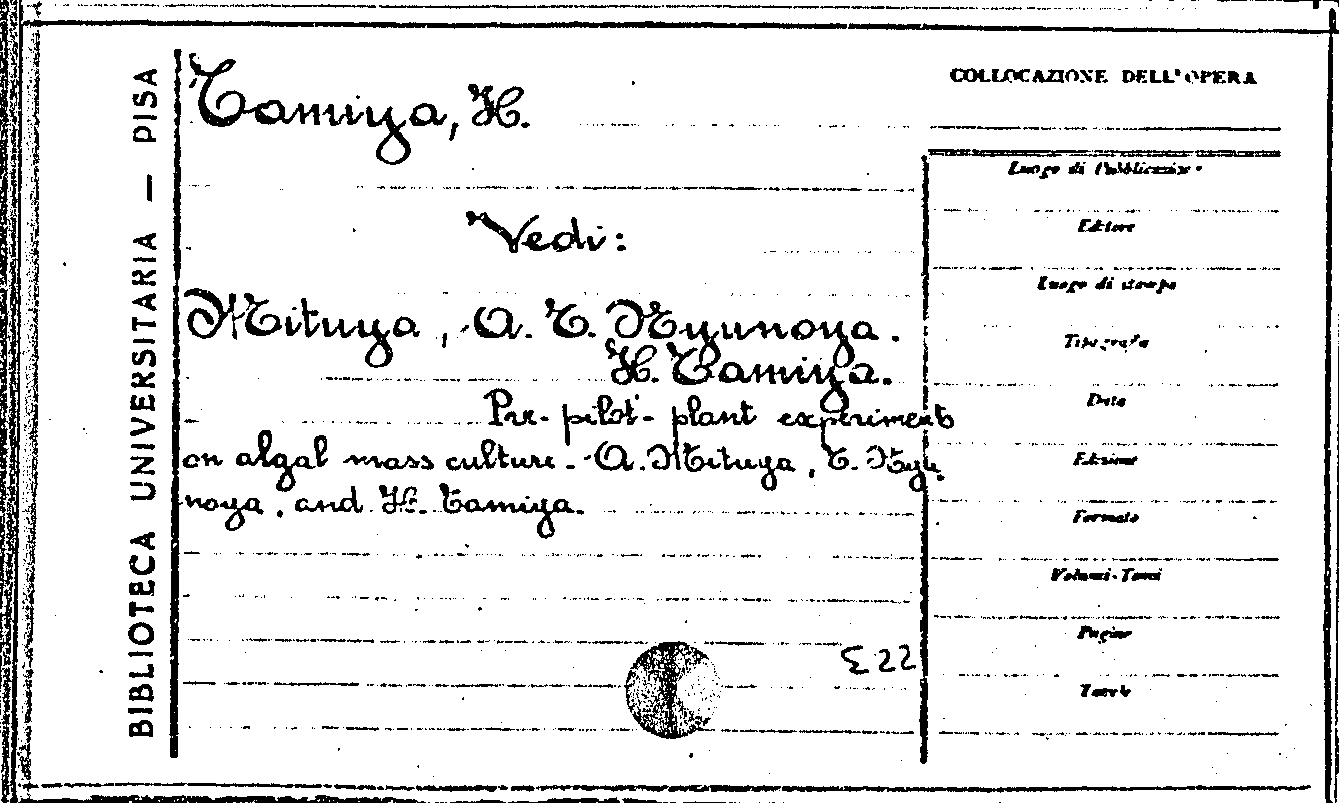 BIBLIOTECA UNIVERSITARIA — PISA
Tamiya, H.
Vedi:
Mituya, A. T. Nyunoya.
H. Tamiya.
Pre-pilot-plant experiments
on algal mass culture. A. Mituya, T. Nyu
noya, and H. Tamiya.
E 22
COLLOCAZIONE DELL'OPERA
Luogo di Pubblicazione
Editore
Luogo di stampa
Tipografia
Data
Edizione
Formato
Volumi-Tomi
Pagine
Tavole